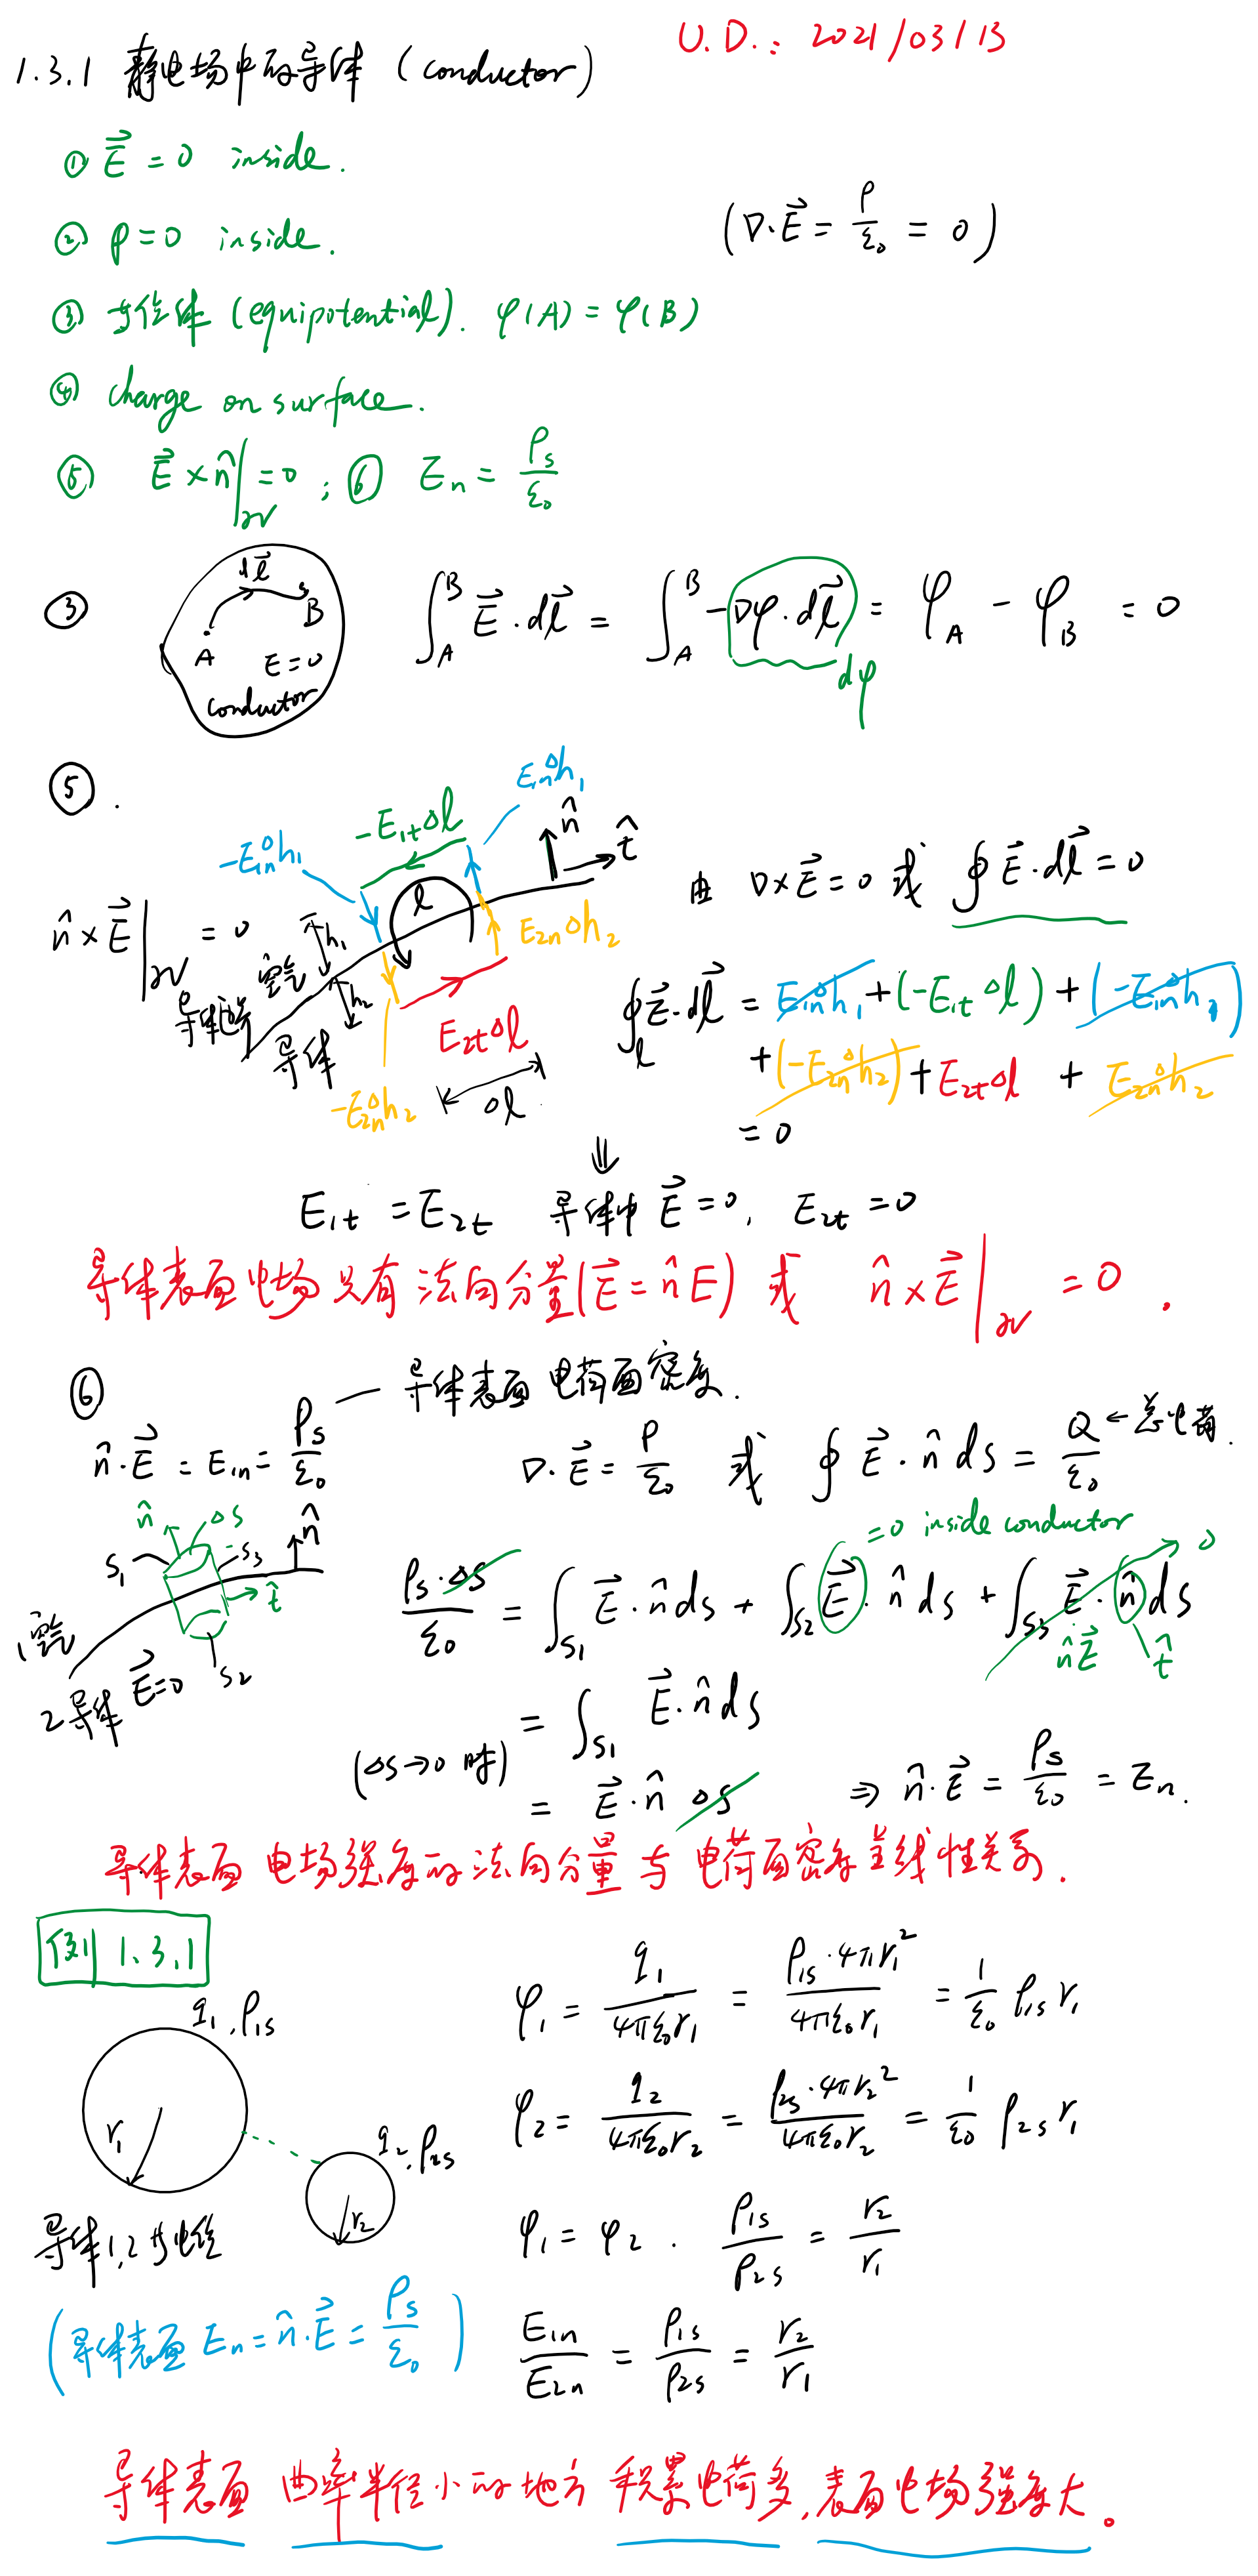 U.D.: 2021/03/13
1.3.1 静电场中的导体 (conductor)
① E⃗ = 0 inside.
② ρ = 0 inside. (∇·E⃗ = ρ/ε₀ = 0)
③ 等位体 (equipotential). φ(A) = φ(B)
④ charge on surface.
⑤ E⃗ × n̂|∂V = 0 ; ⑥ En = ρs/ε₀
③ dl⃗ A B E=0 conductor
∫_A^B E⃗·dl⃗ = ∫_A^B -∇φ·dl⃗ = φA - φB = 0
dφ
⑤.
E1nΔh1
-E1tΔl n̂ t̂
-E1nΔh1
l
n̂ × E⃗|∂V = 0
h1 E2nΔh2
空气
h2
导体
E2tΔl
-E2nΔh2 Δl
由 ∇×E⃗ = 0 或 ∮E⃗·dl⃗ = 0
∮_l E⃗·dl⃗ = E1nΔh1 + (-E1tΔl) + (-E1nΔh1)
+ (-E2nΔh2) + E2tΔl + E2nΔh2
= 0
⇓
E1t = E2t 导体中 E⃗ = 0, E2t = 0
导体表面电场只有法向分量(E⃗ = n̂E) 或 n̂ × E⃗|∂V = 0.
⑥ — 导体表面电荷面密度.
n̂·E⃗ = E1n = ρs/ε₀
∇·E⃗ = ρ/ε₀ 或 ∮E⃗·n̂ds = Q/ε₀ ← 总电荷.
n̂ ΔS n̂
S1 S3
t̂
1空气
2导体 E⃗=0 S2
=0 inside conductor
ρs·ΔS/ε₀ = ∫_S1 E⃗·n̂ds + ∫_S2 E⃗·n̂ds + ∫_S3 E⃗·n̂ds 0
n̂E⃗ t̂
= ∫_S1 E⃗·n̂ds
(ΔS→0 时) = E⃗·n̂ ΔS ⇒ n̂·E⃗ = ρs/ε₀ = En.
导体表面电场强度的法向分量与电荷面密度呈线性关系.
例 1.3.1
q1, ρ1s
r1
q2, ρ2s
r2
导体1,2等电位
φ1 = q1/4πε₀r1 = ρ1s·4πr1²/4πε₀r1 = 1/ε₀ ρ1s r1
φ2 = q2/4πε₀r2 = ρ2s·4πr2²/4πε₀r2 = 1/ε₀ ρ2s r1
φ1 = φ2 . ρ1s/ρ2s = r2/r1
(导体表面 En = n̂·E⃗ = ρs/ε₀)
E1n/E2n = ρ1s/ρ2s = r2/r1
导体表面 曲率半径小的地方 积累电荷多,表面电场强度大。